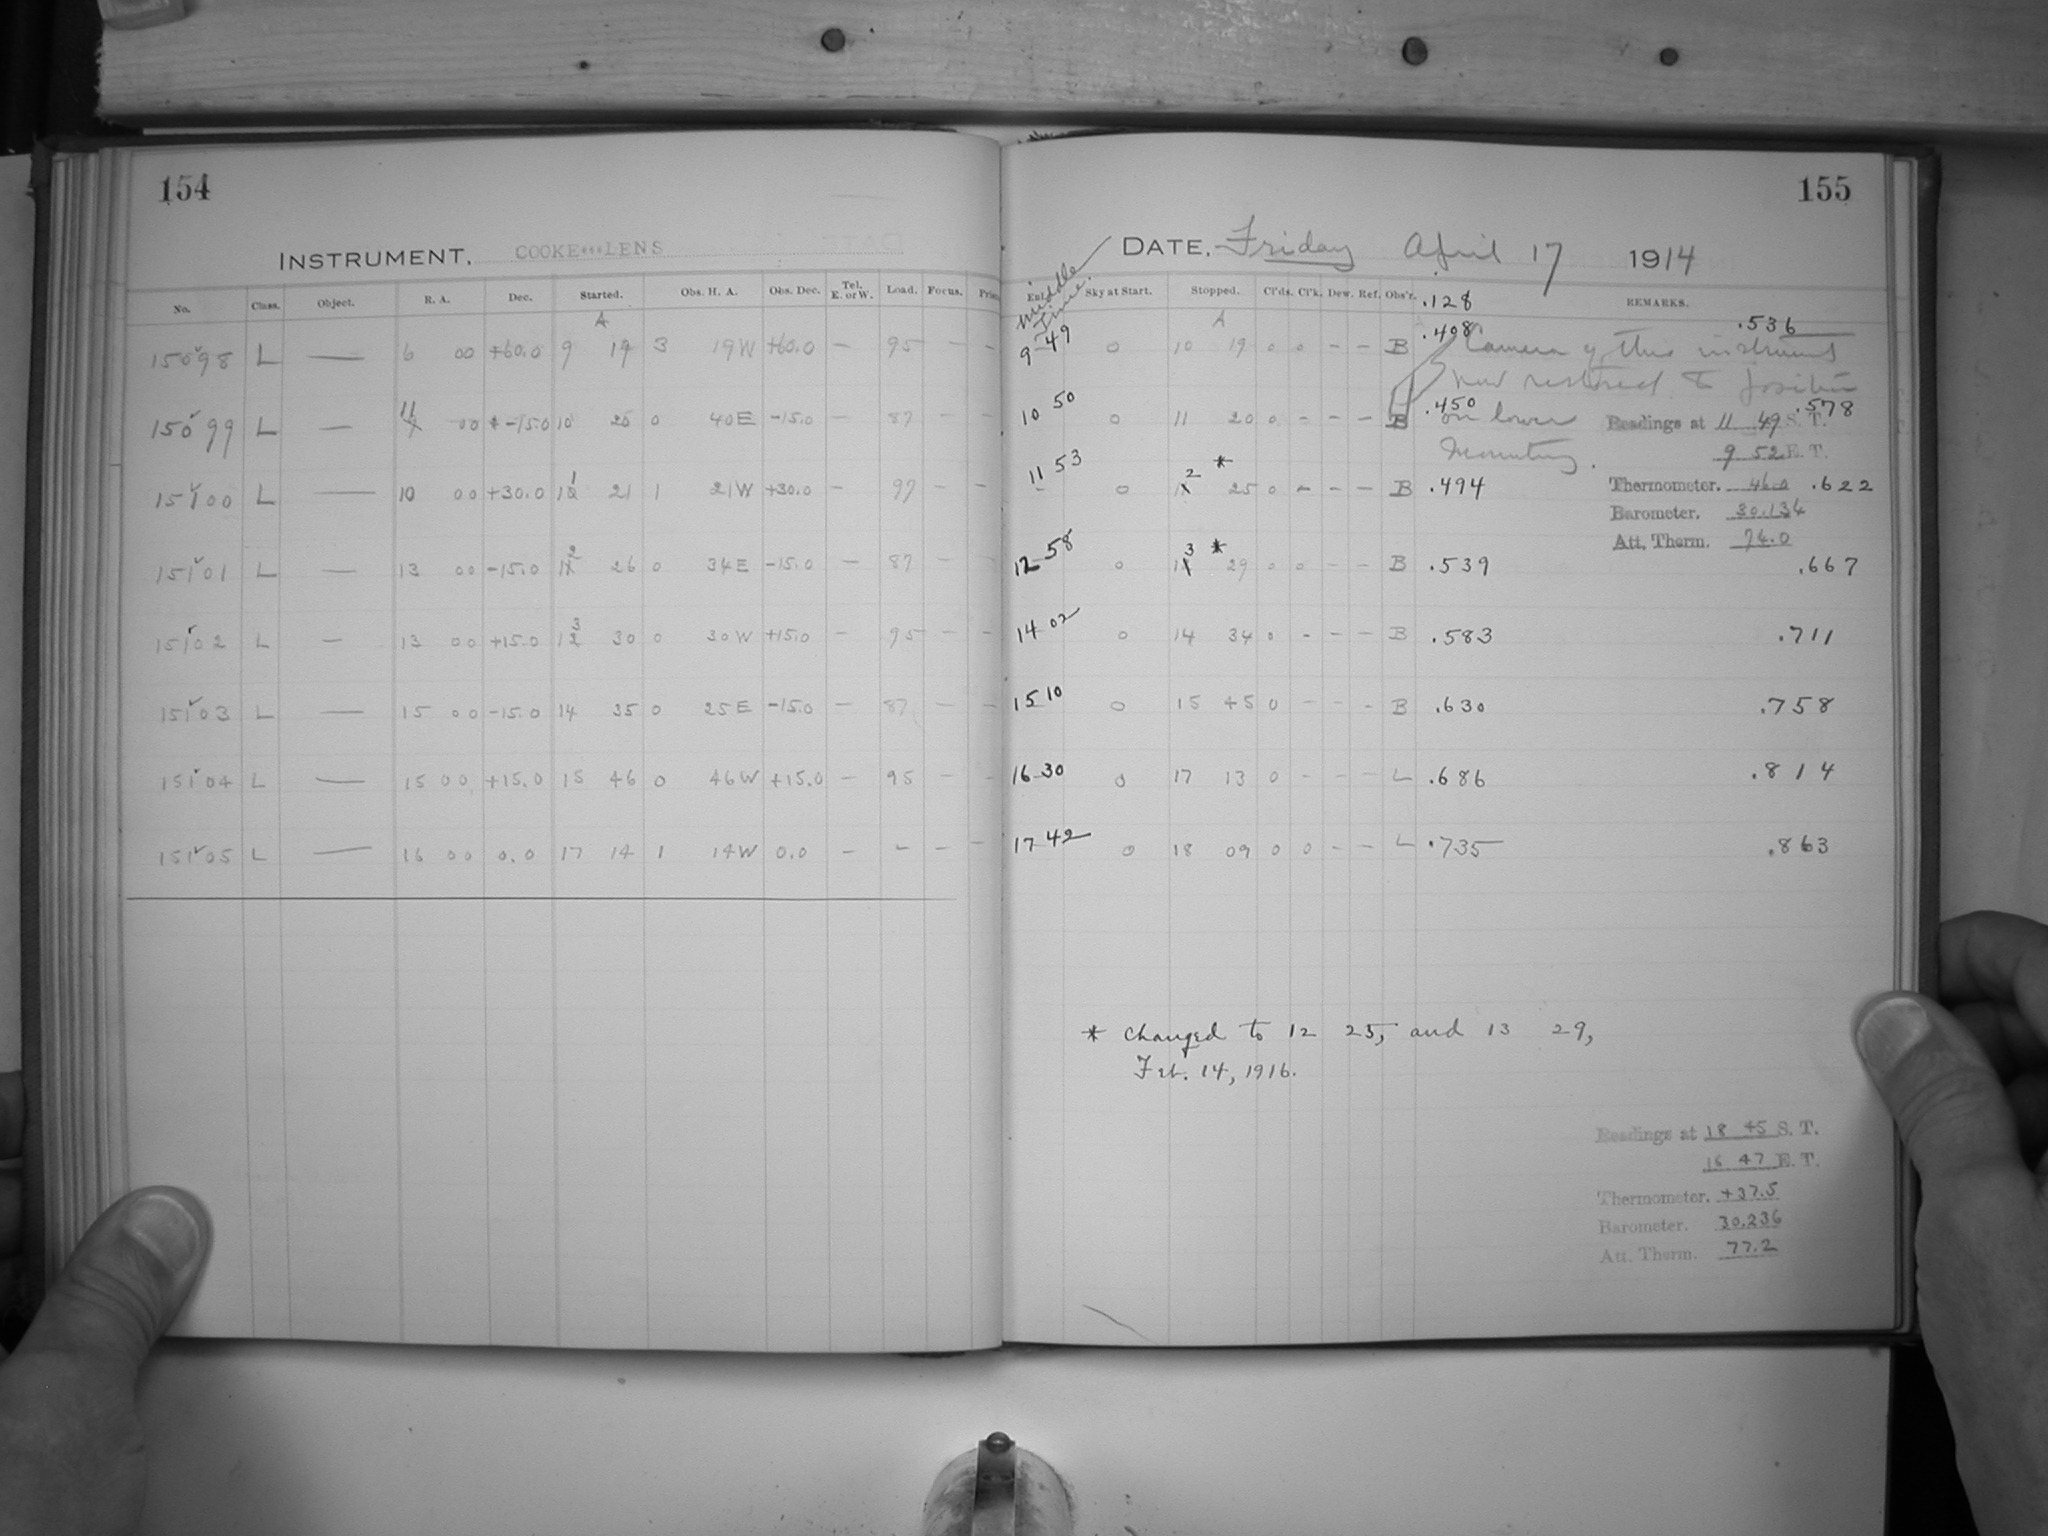 154
155
INSTRUMENT. COOKE***LENS
DATE, Friday April 17 1914
No. Class. Object. R. A. Dec. Started. Obs. H. A. Obs. Dec. Tel. E. or W. Load. Focus.
Middle Time. Sky at Start. Stopped. Cl'ds. Cl'k. Dew. Ref. Obs'r. .128 REMARKS.
A A
15098 L — 6 00 +60.0 9 19 3 19W +60.0 — 95 — —
9 49 0 10 19 0 0 — — B .408 .536
Camera of this instrument
now restored to position
on lower
mounting.
15099 L — 11 00 -15.0 10 20 0 40E -15.0 — 87 — —
10 50 0 11 20 0 — — — B .450 .578
Readings at 11 49 S. T.
9 52 E. T.
Thermometer. 46.0
Barometer. 30.134
Att. Therm. 74.0
15100 L — 10 00 +30.0 11 21 1 21W +30.0 — 97 — —
11 53 0 12 25 * 0 — — — B .494 .622
15101 L — 13 00 -15.0 12 26 0 34E -15.0 — 87 — —
12 58 0 13 29 * 0 0 — — B .539 .667
15102 L — 13 00 +15.0 13 30 0 30W +15.0 — 95 — —
14 02 0 14 34 0 — — — B .583 .711
15103 L — 15 00 -15.0 14 35 0 25E -15.0 — 87 — —
15 10 0 15 45 0 — — — B .630 .758
15104 L — 15 00 +15.0 15 46 0 46W +15.0 — 95 — —
16 30 0 17 13 0 — — — L .686 .814
15105 L — 16 00 0.0 17 14 1 14W 0.0 — — — —
17 42 0 18 09 0 0 — — L .735 .863
* Changed to 12 25, and 13 29,
Feb. 14, 1916.
Readings at 18 45 S. T.
16 47 E. T.
Thermometer. +37.5
Barometer. 30.236
Att. Therm. 77.2